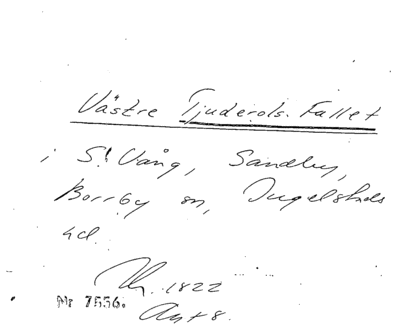 Västre Tjuderols. Fallet
i S! Vång, Sandby,
Borrby sn, Ingelstads
hd.
1822
Nr 7556.
Akt 8.